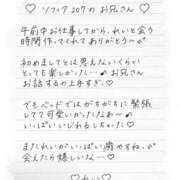 ♡ ソフィア207のお兄さん ♡
午前中お仕事してから、れいと会う
時間作ってくれてありがとう〜♂
初めましてとは思えないくらい
とっても楽しかった…♪ お兄さん
お話するの上手すぎ♡
でもベッドではガチガチに緊張
してて可愛いかったなぁ〜
いっぱいいじれるしちゃった♡
またれいがいっぱい癒やすね♂
会えたら嬉しいな…♡
♡れい♡